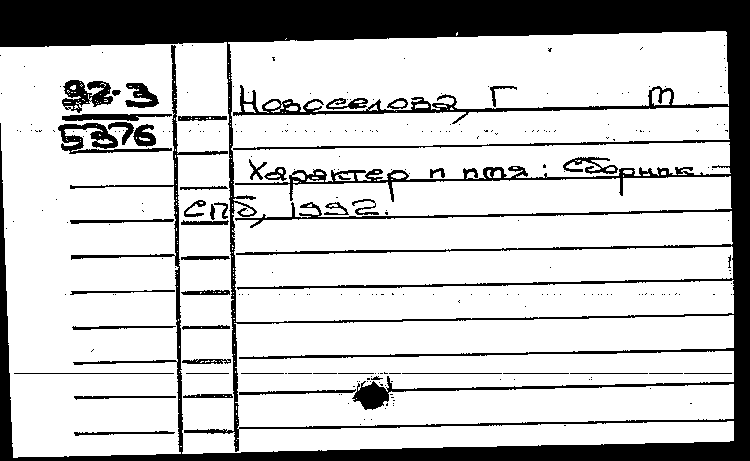 92-3
5376
Новоселова, Г m
Характер п птя : Сборнпк. –
СПб, 1992.